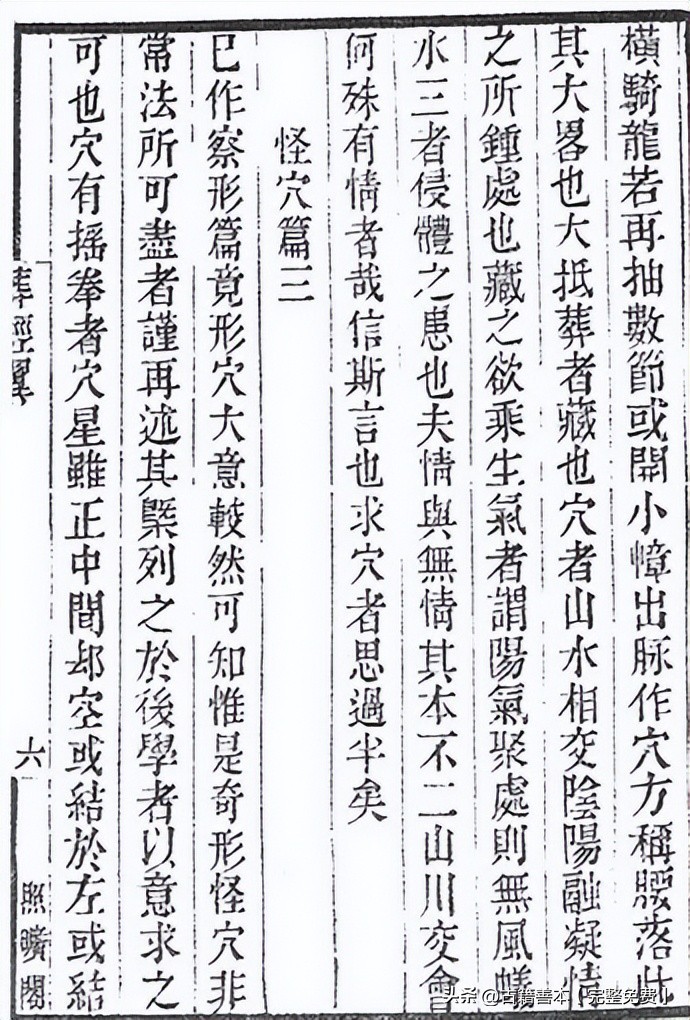 橫騎龍若再抽數節或開小幛出脉作穴方稱腰落此
其大畧也大抵葬者藏也穴者山水相交陰陽融凝情
之所鍾處也藏之欲乘生氣者謂陽氣聚處則無風蟻
水三者侵體之患也夫情與無情其本不二山川交會
何殊有情者哉信斯言也求穴者思過半矣
怪穴篇三
巳作察形篇竟形穴大意較然可知惟是奇形怪穴非
常法所可盡者謹再述其槩列之於後學者以意求之
可也穴有摇拳者穴星雖正中間却空或結於左或結
葬經翼
六
照曠閣
头条 @古籍善本（完整免费）